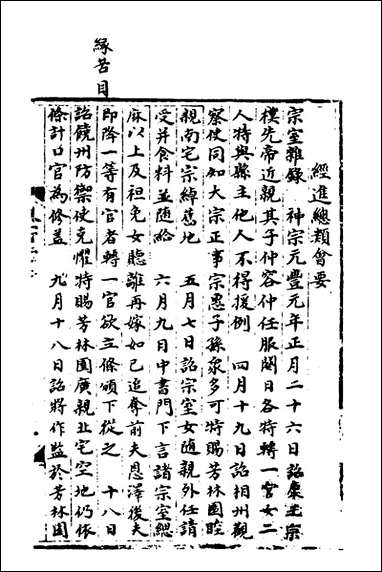 緣苦目
經進總類會要
宗室雜錄　神宗元豐元年正月二十六日詔集王宗
樸先帝近親其子仲容仲任服闋日各特轉一官女二
人特與縣主他人不得援例　四月十九日詔相州觀
察使同知大宗正事宗惠子孫衆多可特賜芳林園睦
親南宅宗綽舊地　五月七日詔宗室女隨親外任請
受并食料並隨給　六月九日中書門下言諸宗室緦
麻以上及袒免女聽離再嫁如已追奪前夫恩澤後夫
即降一等有官者轉一官欲立條頒下從之　十八日
詔饒州防禦使克懼特賜芳林園廣親北宅空地仍依
條計口官為修蓋　九月十八日詔將作監於芳林園